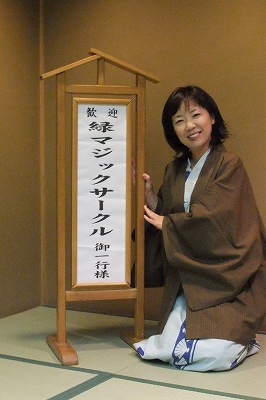 歓迎
緑マジックサークル
御一行様